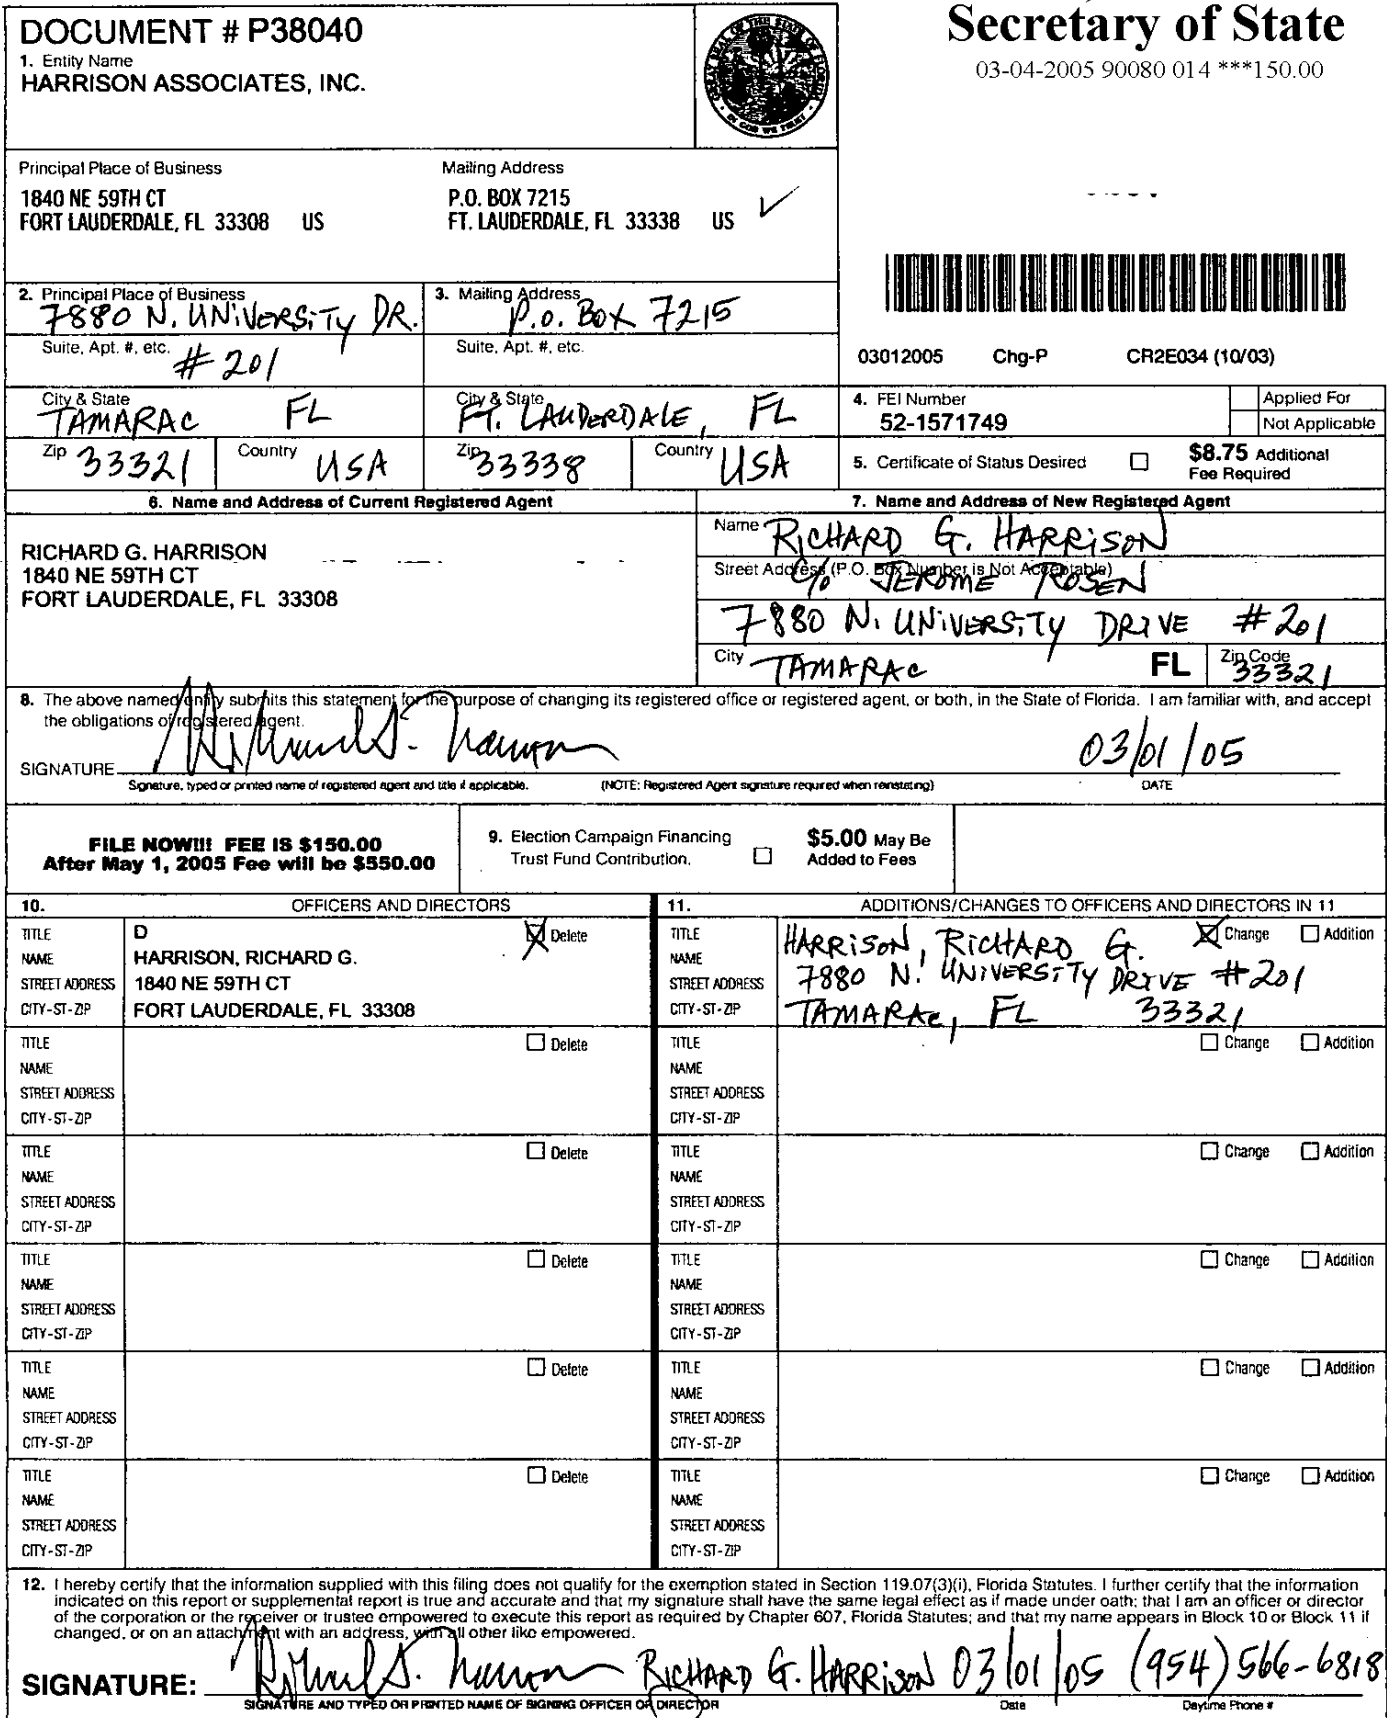 DOCUMENT # P38040
1. Entity Name
HARRISON ASSOCIATES, INC.
Secretary of State
03-04-2005 90080 014 ***150.00
Principal Place of Business
1840 NE 59TH CT
FORT LAUDERDALE, FL 33308 US
Mailing Address
P.O. BOX 7215
FT. LAUDERDALE, FL 33338 US
2. Principal Place of Business
7880 N. UNIVERSITY DR.
Suite, Apt. #, etc.
# 201
City & State
TAMARAC FL
Zip 33321 Country USA
3. Mailing Address
P.O. BOX 7215
Suite, Apt. #, etc.
City & State
FT. LAUDERDALE, FL
Zip 33338 Country USA
03012005 Chg-P CR2E034 (10/03)
4. FEI Number
52-1571749
Applied For
Not Applicable
5. Certificate of Status Desired
$8.75 Additional
Fee Required
6. Name and Address of Current Registered Agent
RICHARD G. HARRISON
1840 NE 59TH CT
FORT LAUDERDALE, FL 33308
7. Name and Address of New Registered Agent
Name RICHARD G. HARRISON
Street Address (P.O. Box Number is Not Acceptable)
c/o JEROME ROSEN
7880 N. UNIVERSITY DRIVE #201
City TAMARAC FL Zip Code 33321
8. The above named entity submits this statement for the purpose of changing its registered office or registered agent, or both, in the State of Florida. I am familiar with, and accept
the obligations of registered agent.
SIGNATURE Richard G. Harrison 03/01/05
Signature, typed or printed name of registered agent and title if applicable. (NOTE: Registered Agent signature required when reinstating) DATE
FILE NOW!!! FEE IS $150.00
After May 1, 2005 Fee will be $550.00
9. Election Campaign Financing
Trust Fund Contribution.
$5.00 May Be
Added to Fees
10. OFFICERS AND DIRECTORS
TITLE D Delete
NAME HARRISON, RICHARD G.
STREET ADDRESS 1840 NE 59TH CT
CITY-ST-ZIP FORT LAUDERDALE, FL 33308
TITLE Delete
NAME
STREET ADDRESS
CITY-ST-ZIP
TITLE Delete
NAME
STREET ADDRESS
CITY-ST-ZIP
TITLE Delete
NAME
STREET ADDRESS
CITY-ST-ZIP
TITLE Delete
NAME
STREET ADDRESS
CITY-ST-ZIP
TITLE Delete
NAME
STREET ADDRESS
CITY-ST-ZIP
11. ADDITIONS/CHANGES TO OFFICERS AND DIRECTORS IN 11
TITLE Change Addition
NAME HARRISON, RICHARD G.
STREET ADDRESS 7880 N. UNIVERSITY DRIVE #201
CITY-ST-ZIP TAMARAC, FL 33321
TITLE Change Addition
NAME
STREET ADDRESS
CITY-ST-ZIP
TITLE Change Addition
NAME
STREET ADDRESS
CITY-ST-ZIP
TITLE Change Addition
NAME
STREET ADDRESS
CITY-ST-ZIP
TITLE Change Addition
NAME
STREET ADDRESS
CITY-ST-ZIP
TITLE Change Addition
NAME
STREET ADDRESS
CITY-ST-ZIP
12. I hereby certify that the information supplied with this filing does not qualify for the exemption stated in Section 119.07(3)(i), Florida Statutes. I further certify that the information
indicated on this report or supplemental report is true and accurate and that my signature shall have the same legal effect as if made under oath; that I am an officer or director
of the corporation or the receiver or trustee empowered to execute this report as required by Chapter 607, Florida Statutes; and that my name appears in Block 10 or Block 11 if
changed, or on an attachment with an address, with all other like empowered.
SIGNATURE: Richard G. Harrison RICHARD G. HARRISON 03/01/05 (954) 566-6818
SIGNATURE AND TYPED OR PRINTED NAME OF SIGNING OFFICER OR DIRECTOR Date Daytime Phone #